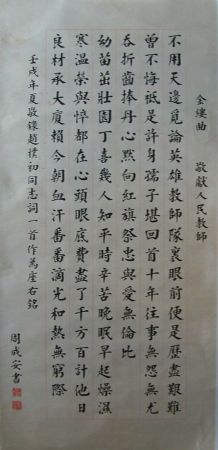 金縷曲 敬獻人民教師
不用天邊覓論英雄教師隊裏眼前便是歷盡艱難
曾不悔祗是許身孺子堪回首十年往事無怨無尤
吞折齒捧丹心默向紅旗祭忠與愛無倫比
幼苗茁壯園丁喜幾人知平時辛苦晚眠早起燥濕
寒溫榮與悴都在心頭眼底費盡了千方百計他日
良材承大廈賴今朝血汗番番滴光和熱無窮際
壬戌年夏敬錄趙樸初同志詞一首作為座右銘
周安書